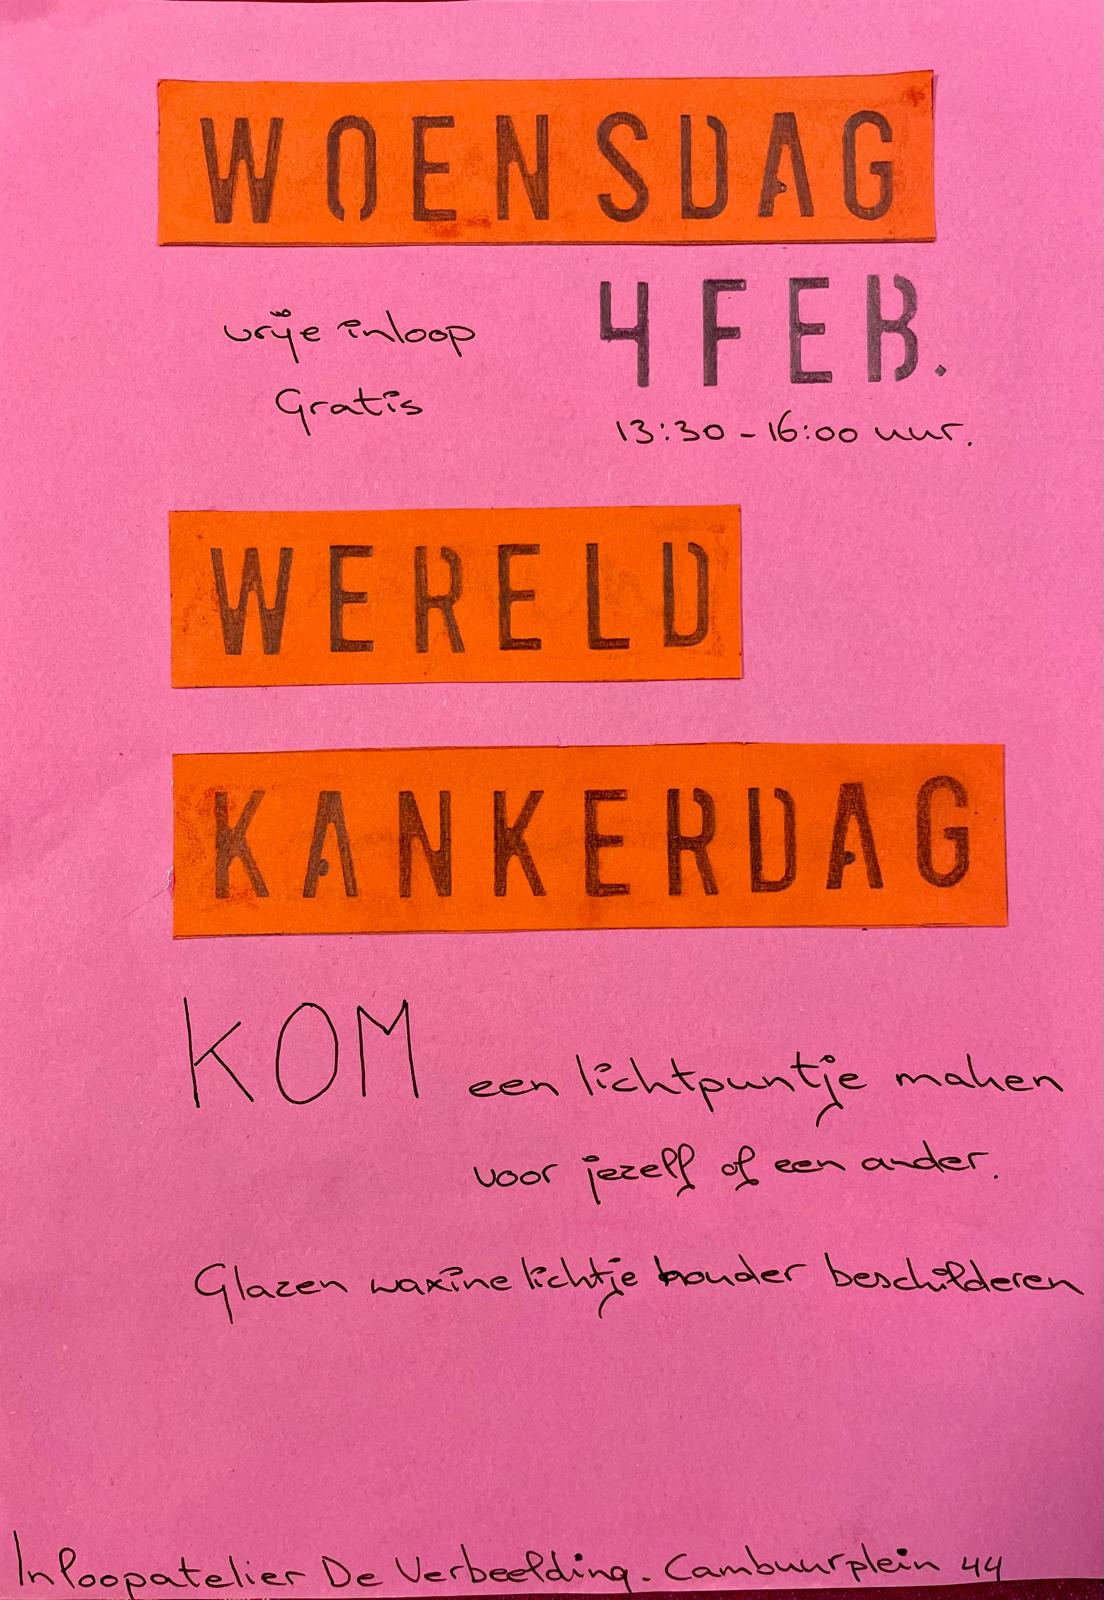 WOENSDAG
4 FEB.
vrije inloop
Gratis
13:30 - 16:00 uur.
WERELD
KANKERDAG
KOM een lichtpuntje maken
voor jezelf of een ander.
Glazen waxine lichtje houder beschilderen
Inloopatelier De Verbeelding. Cambuurplein 44